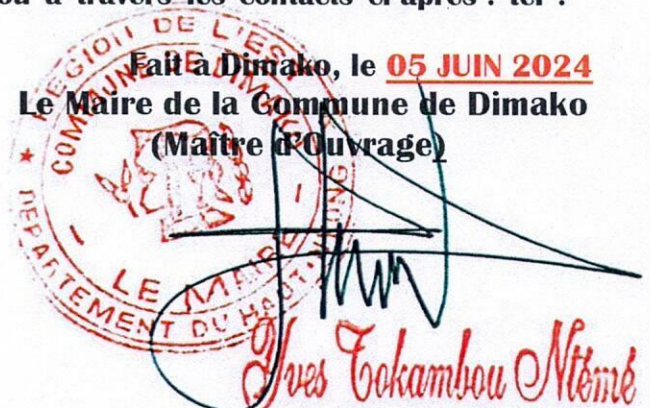 ou à travers les contacts ci-après : tel :
Fait à Dimako, le 05 JUIN 2024
Le Maire de la Commune de Dimako
(Maître d’Ouvrage)
REGION DE L'EST
COMMUNE DE DIMAKO
LE MAIRE
DEPARTEMENT DU HAUT-NYONG
Yves Tokambou Ntémé